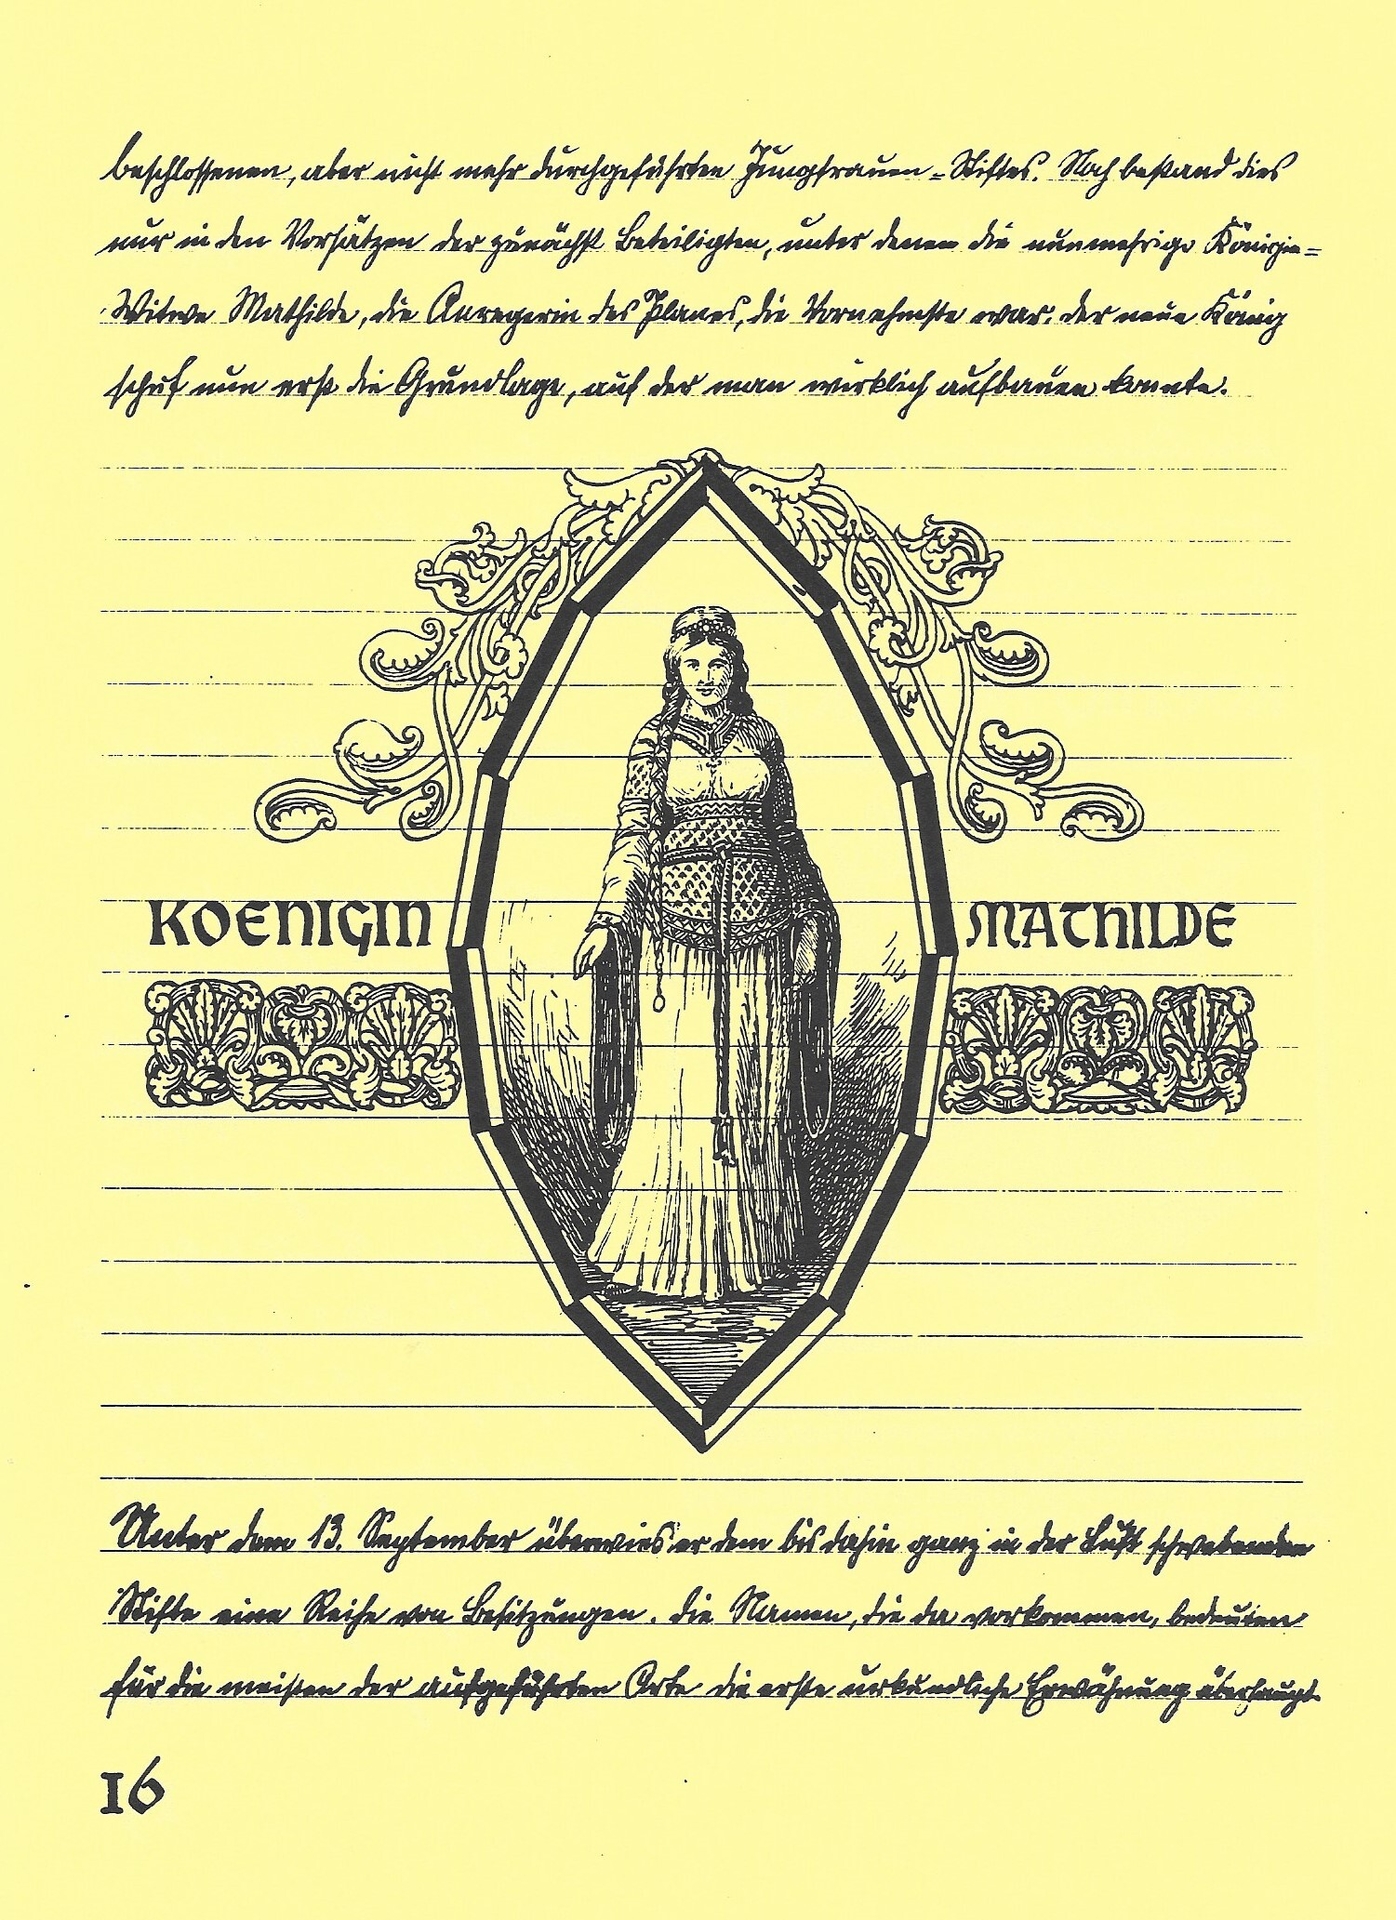 beschlossenen, aber nicht mehr durchgeführten Jungfrauen-Stiftes. Noch bestand dies
nur in den Vorsätzen der zunächst Beteiligten, unter denen die nunmehrige Königin-
Witwe Mathilde, die Anregerin des Planes, die Vornehmste war. der neue König
schuf nun erst die Grundlage, auf der man wirklich aufbauen konnte.
KOENIGIN MATHILDE
Unter dem 13. September überwies er dem bis dahin ganz in der Luft schwebenden
Stifte eine Reihe von Besitzungen. die Namen, die da vorkommen, bedeuten
für die meisten der aufgeführten Orte die erste urkundliche Erwähnung überhaupt.
16